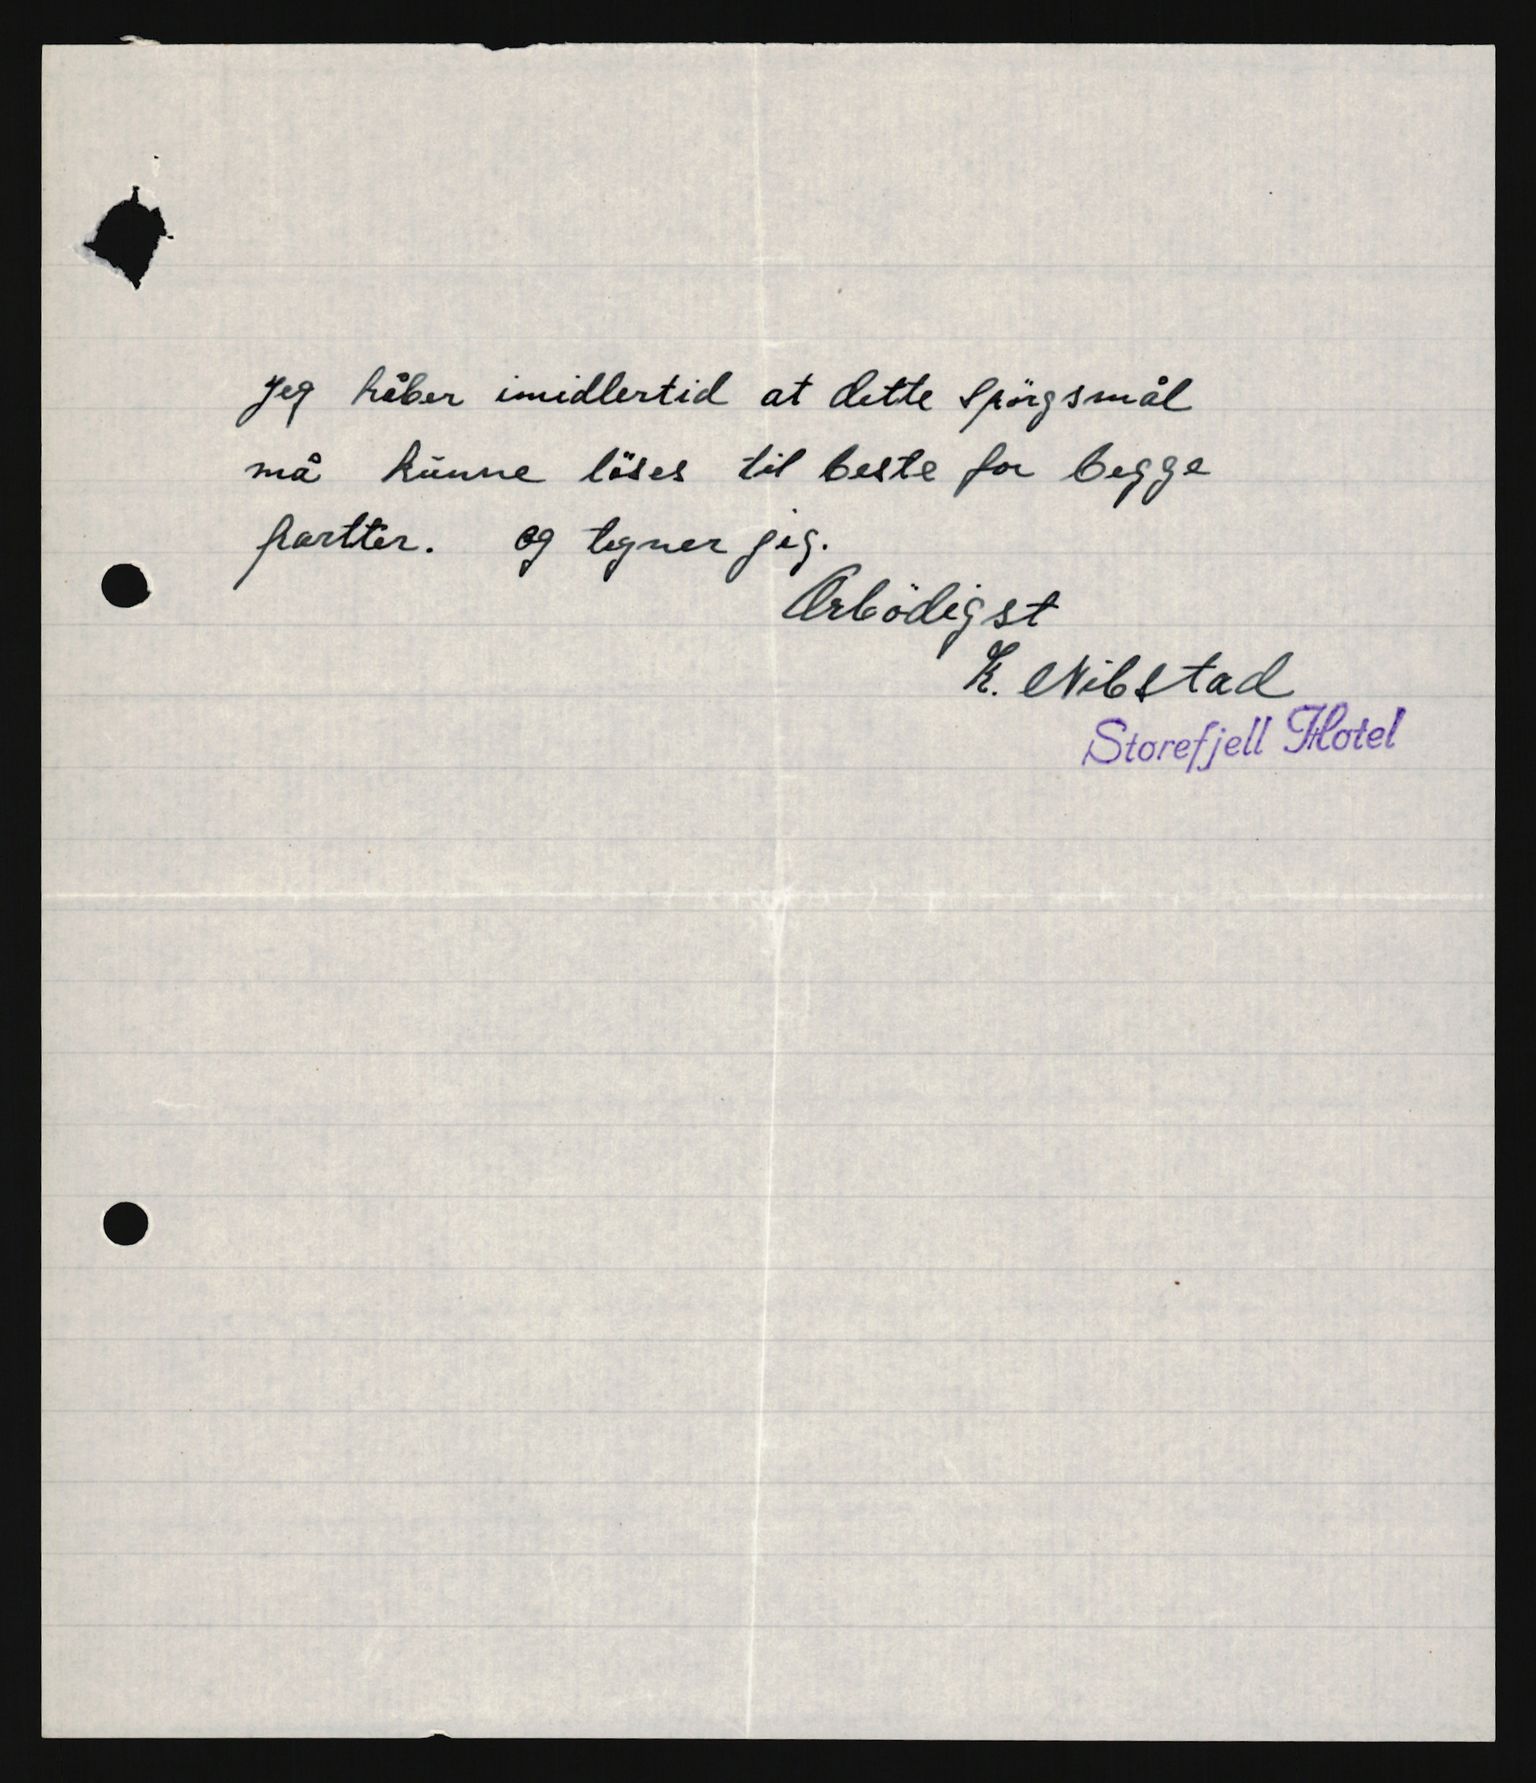 Jeg håber imidlertid at dette spörgsmål
må kunne löses til beste for begge
partter. og tegner jeg.
Ærbödigst
K. Nibstad
Storefjell Hotel